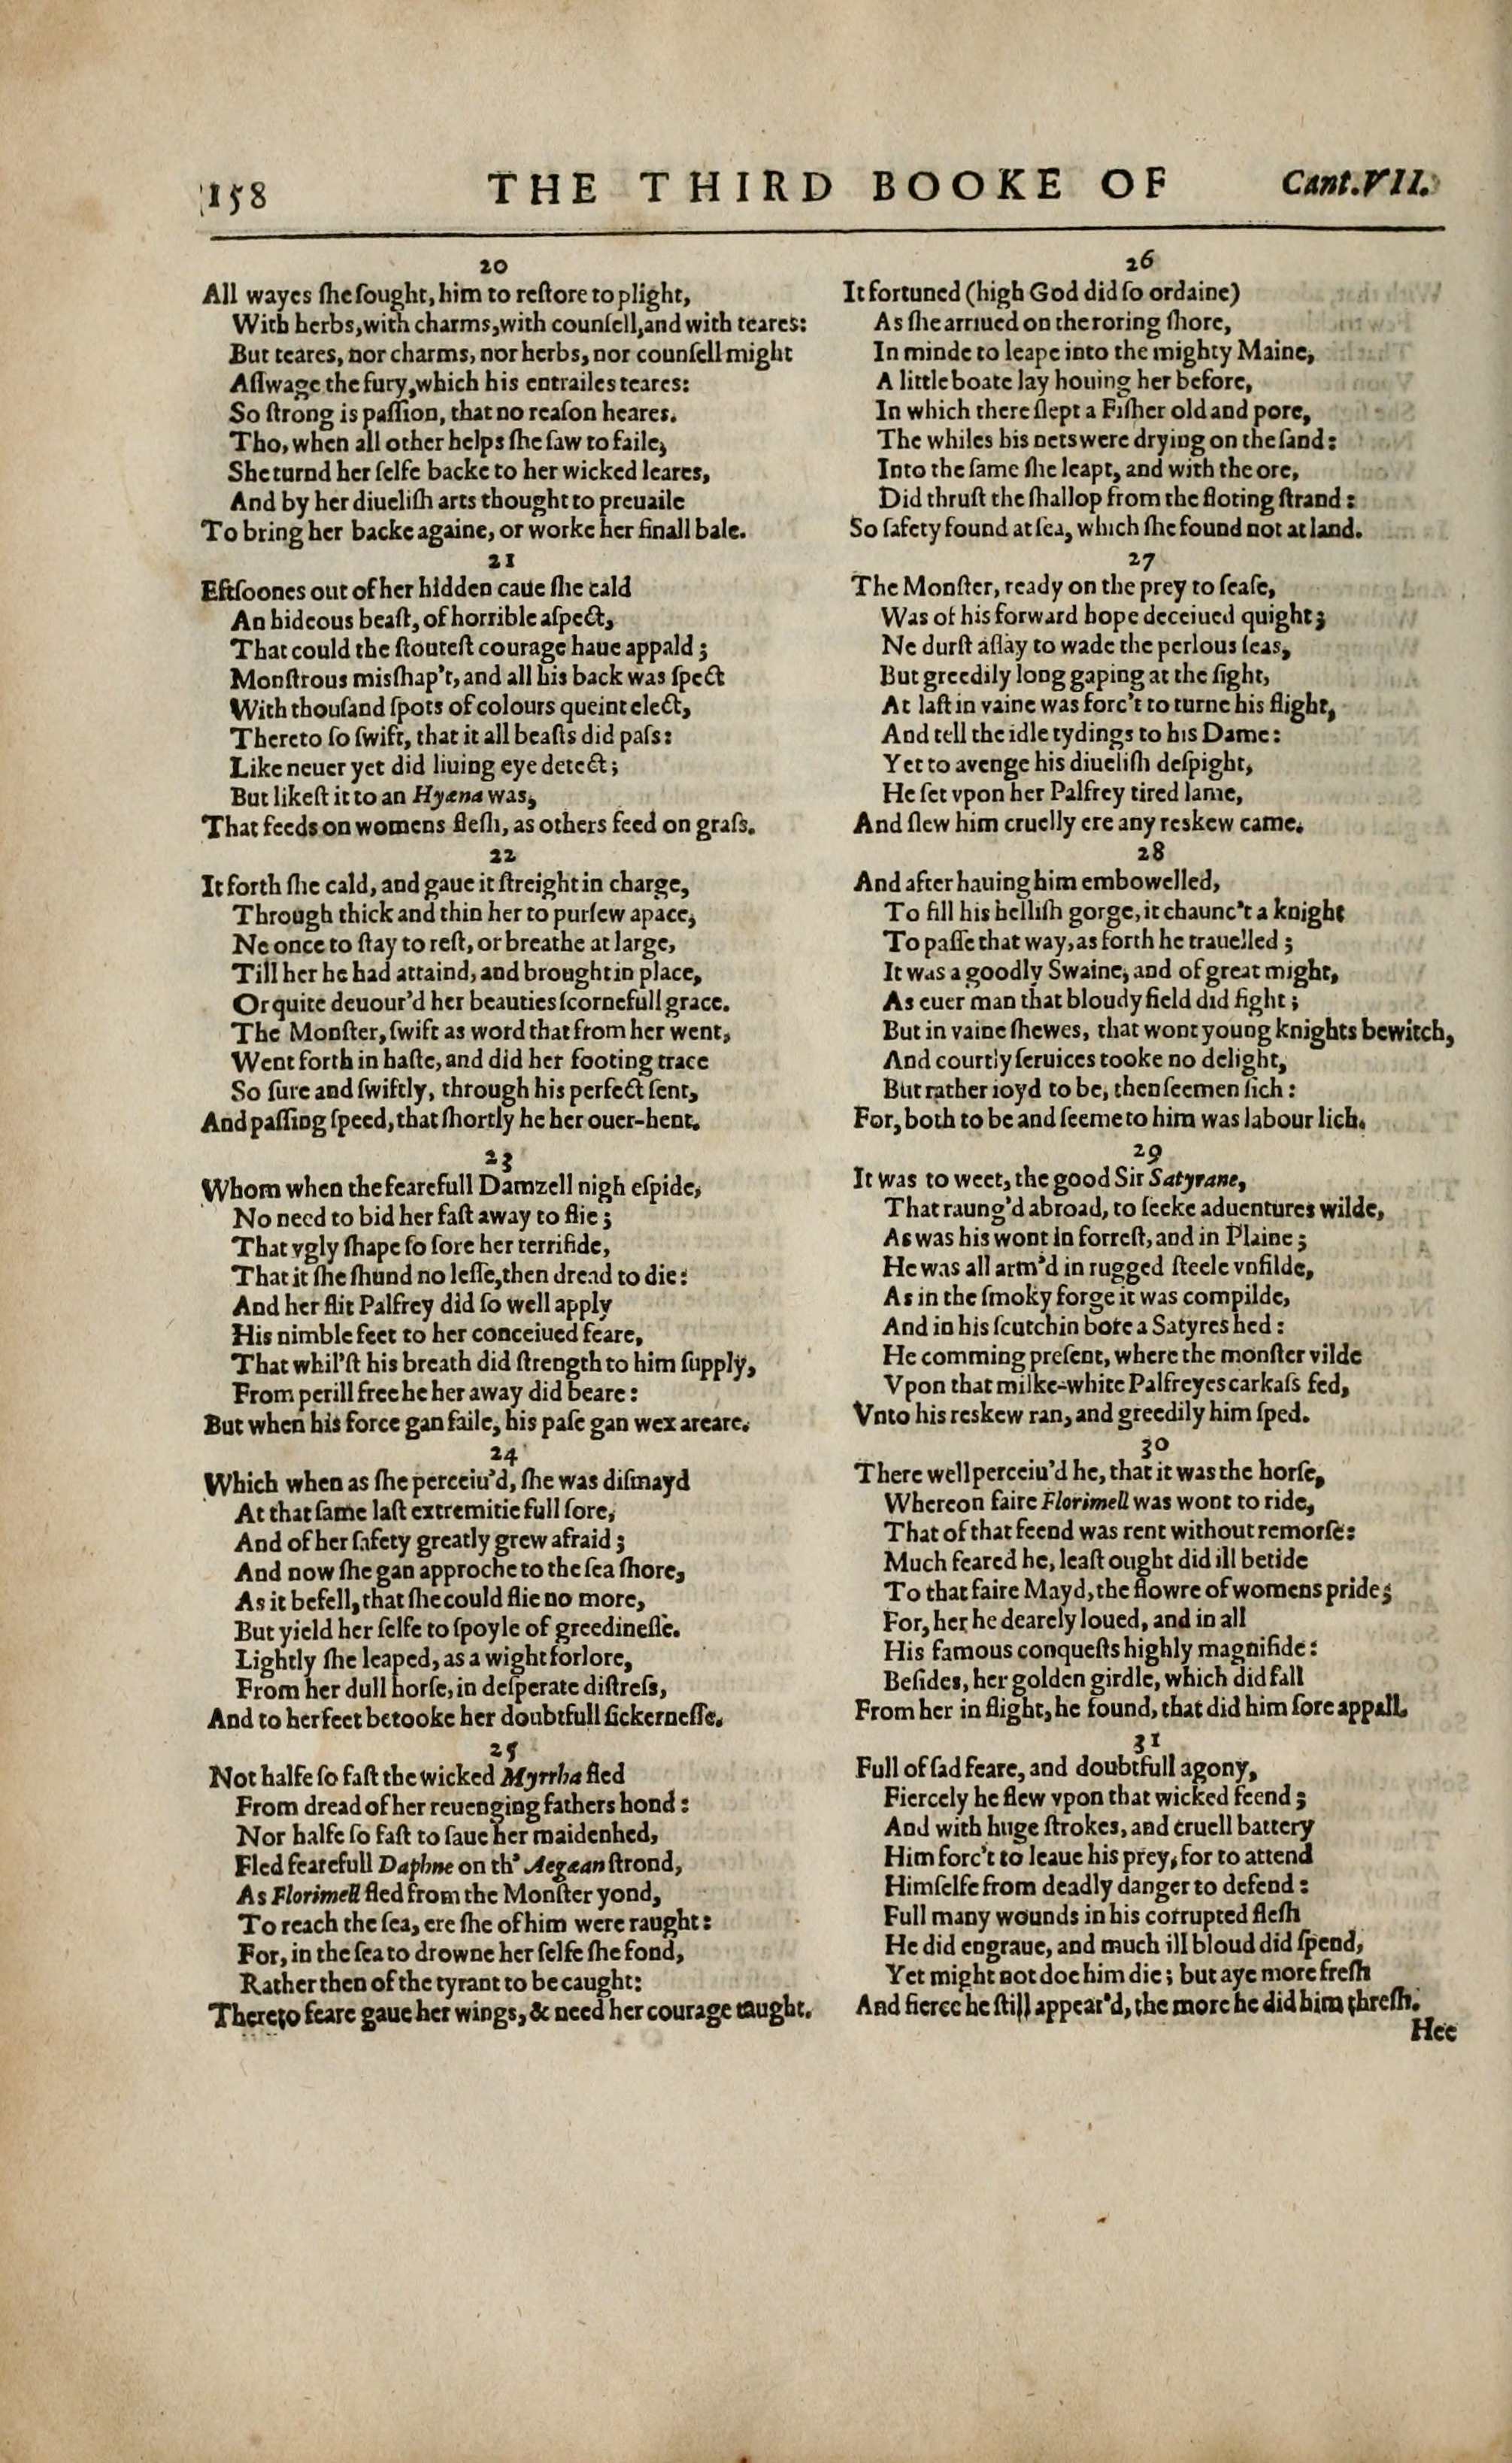 158 THE THIRD BOOKE OF Cant.VII.
20
All wayes ſhe ſought, him to reſtore to plight,
With herbs, with charms, with counſell, and with teares:
But teares, nor charms, nor herbs, nor counſell might
Aſſwage the fury, which his entrailes teares:
So ſtrong is paſſion, that no reaſon heares.
Tho, when all other helps ſhe ſaw to faile,
She turnd her ſelfe backe to her wicked leares,
And by her diueliſh arts thought to preuaile
To bring her backe againe, or worke her finall bale.
21
Eftſoones out of her hidden caue ſhe cald
An hideous beaſt, of horrible aſpect,
That could the ſtouteſt courage haue appald;
Monſtrous misſhap't, and all his back was ſpect
With thouſand ſpots of colours queint elect,
Thereto ſo ſwift, that it all beaſts did paſs:
Like neuer yet did liuing eye detect;
But likeſt it to an Hyæna was,
That feeds on womens fleſh, as others feed on graſs.
22
It forth ſhe cald, and gaue it ſtreight in charge,
Through thick and thin her to purſew apace,
Ne once to ſtay to reſt, or breathe at large,
Till her he had attaind, and brought in place,
Or quite deuour'd her beauties ſcornefull grace.
The Monſter, ſwift as word that from her went,
Went forth in haſte, and did her footing trace
So ſure and ſwiftly, through his perfect ſent,
And paſſing ſpeed, that ſhortly he her ouer-hent.
23
Whom when the fearefull Damzell nigh eſpide,
No need to bid her faſt away to flie;
That vgly ſhape ſo ſore her terrifide,
That it ſhe ſhund no leſſe, then dread to die:
And her flit Palfrey did ſo well apply
His nimble feet to her conceiued feare,
That whil'ſt his breath did ſtrength to him ſupply,
From perill free he her away did beare:
But when his force gan faile, his paſe gan wex areare.
24
Which when as ſhe perceiu'd, ſhe was diſmayd
At that ſame laſt extremitie full ſore,
And of her ſafety greatly grew afraid;
And now ſhe gan approche to the ſea ſhore,
As it befell, that ſhe could flie no more,
But yield her ſelfe to ſpoyle of greedineſſe.
Lightly ſhe leaped, as a wight forlore,
From her dull horſe, in deſperate diſtreſs,
And to her feet betooke her doubtfull ſickerneſſe.
25
Not halfe ſo faſt the wicked Myrrha fled
From dread of her reuenging fathers hond:
Nor halfe ſo faſt to ſaue her maidenhed,
Fled fearefull Daphne on th' Aegæan ſtrond,
As Florimell fled from the Monſter yond,
To reach the ſea, ere ſhe of him were raught:
For, in the ſea to drowne her ſelfe ſhe fond,
Rather then of the tyrant to be caught:
Thereto feare gaue her wings, & need her courage taught.
26
It fortuned (high God did ſo ordaine)
As ſhe arriued on the roring ſhore,
In minde to leape into the mighty Maine,
A little boate lay houing her before,
In which there ſlept a Fiſher old and pore,
The whiles his nets were drying on the ſand:
Into the ſame ſhe leapt, and with the ore,
Did thruſt the ſhallop from the floting ſtrand:
So ſafety found at ſea, which ſhe found not at land.
27
The Monſter, ready on the prey to ſeaſe,
Was of his forward hope deceiued quight;
Ne durſt aſſay to wade the perlous ſeas,
But greedily long gaping at the ſight,
At laſt in vaine was forc't to turne his flight,
And tell the idle tydings to his Dame:
Yet to avenge his diueliſh deſpight,
He ſet vpon her Palfrey tired lame,
And ſlew him cruelly ere any reskew came.
28
And after hauing him embowelled,
To fill his helliſh gorge, it chaunc't a knight
To paſſe that way, as forth he trauelled;
It was a goodly Swaine, and of great might,
As euer man that bloudy field did fight;
But in vaine ſhewes, that wont young knights bewitch,
And courtly ſeruices tooke no delight,
But rather ioyd to be, then ſeemen ſich:
For, both to be and ſeeme to him was labour lich.
29
It was to weet, the good Sir Satyrane,
That raung'd abroad, to ſeeke aduentures wilde,
As was his wont in forreſt, and in Plaine;
He was all arm'd in rugged ſteele vnfilde,
As in the ſmoky forge it was compilde,
And in his ſcutchin bore a Satyres hed:
He comming preſent, where the monſter vilde
Vpon that milke-white Palfreyes carkaſs fed,
Vnto his reskew ran, and greedily him ſped.
30
There well perceiu'd he, that it was the horſe,
Whereon faire Florimell was wont to ride,
That of that feend was rent without remorſe:
Much feared he, leaſt ought did ill betide
To that faire Mayd, the flowre of womens pride;
For, her he dearely loued, and in all
His famous conqueſts highly magnifide:
Beſides, her golden girdle, which did fall
From her in flight, he found, that did him ſore appall.
31
Full of ſad feare, and doubtfull agony,
Fiercely he flew vpon that wicked feend;
And with huge ſtrokes, and cruell battery
Him forc't to leaue his prey, for to attend
Himſelfe from deadly danger to defend:
Full many wounds in his corrupted fleſh
He did engraue, and much ill bloud did ſpend,
Yet might not doe him die; but aye more freſh
And fierce he ſtill appear'd, the more he did him threſh.
Hee